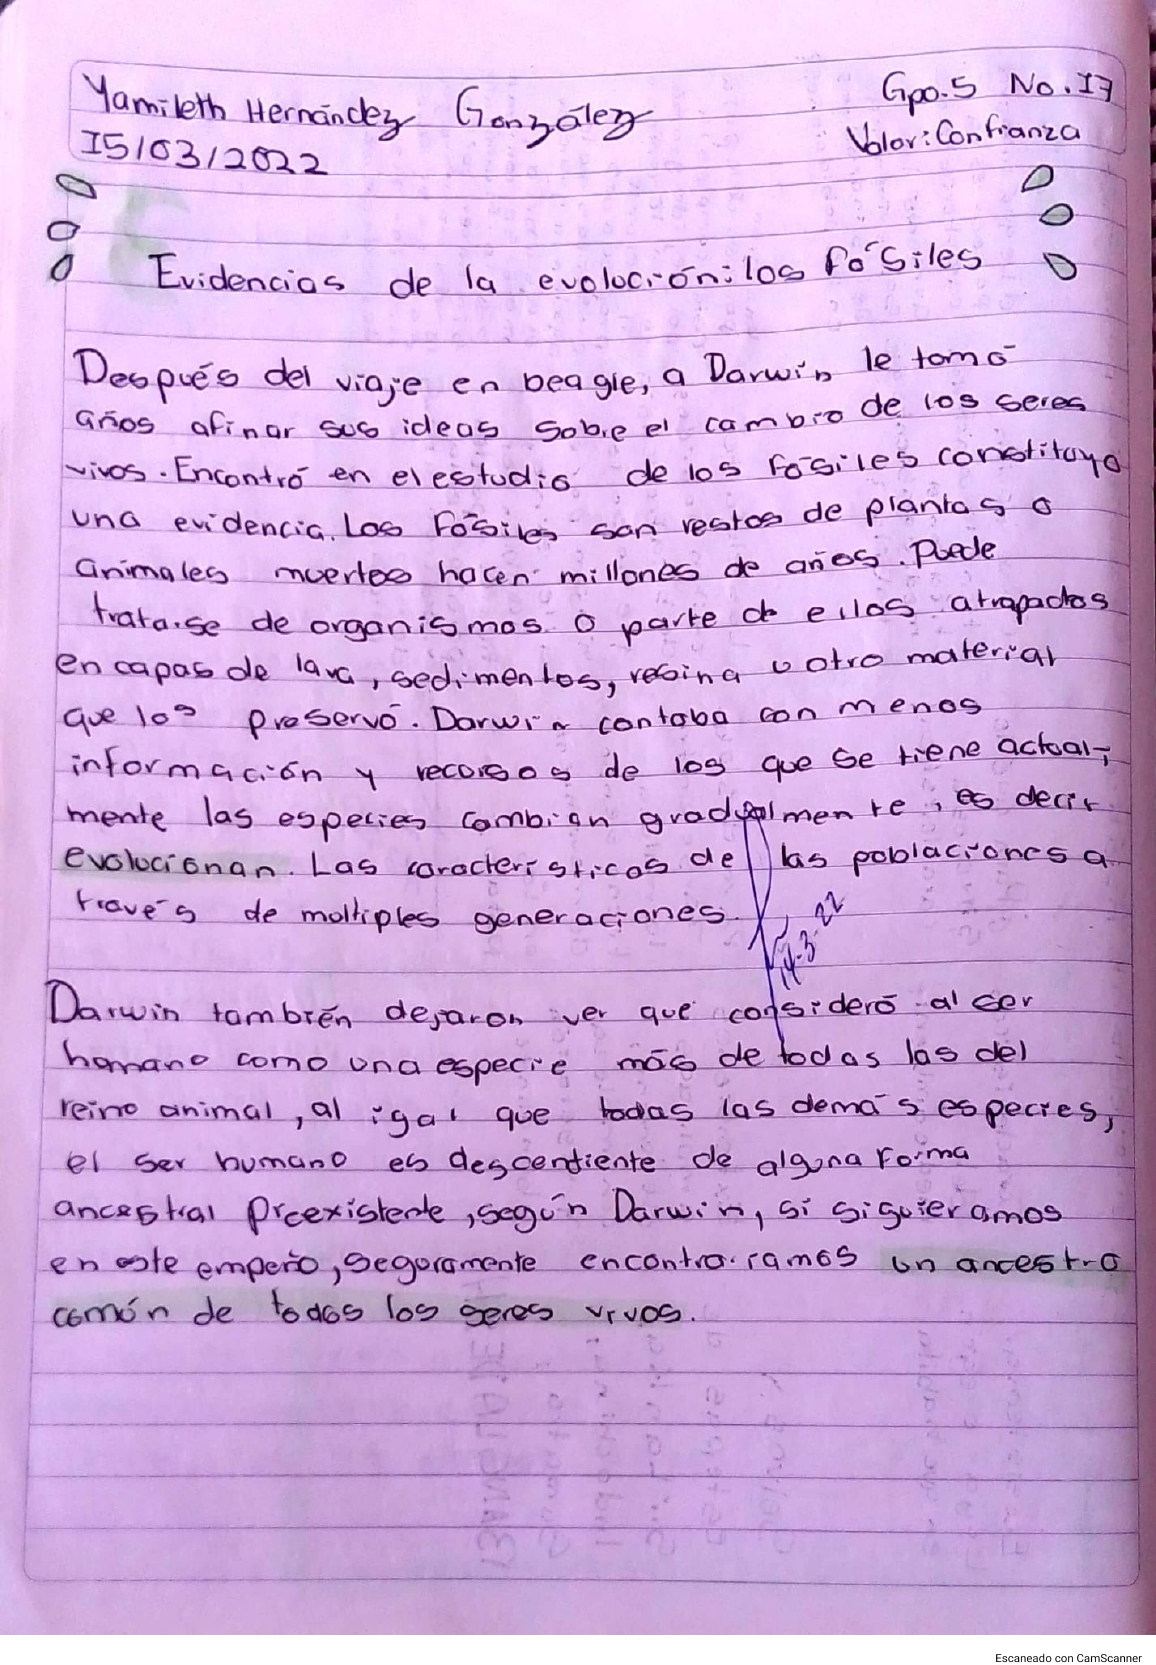 Yamileth Hernández González
Gpo.5 No.17
15/03/2022
Valor: Confianza
Evidencias de la evolución: los fósiles
Después del viaje en beagle, a Darwin le tomó
años afinar sus ideas sobre el cambio de los seres
vivos. Encontró en el estudio de los fósiles constituyo
una evidencia. Los fósiles son restos de plantas o
animales muertos hacen millones de años. Puede
tratarse de organismos o parte de ellos atrapados
en capas de lava, sedimentos, resina u otro material
que los preservó. Darwin contaba con menos
información y recursos de los que se tiene actual-
mente las especies cambian gradualmente, es decir
evolucionan. Las características de las poblaciones a
través de multiples generaciones.
14-3-22
Darwin también dejaron ver que consideró al ser
humano como una especie más de todas las del
reino animal, al igal que todas las demás especies,
el ser humano es descentiente de alguna forma
ancestral preexistente, según Darwin, si siguieramos
en este empeño, seguramente encontrariamos un ancestro
común de todos los seres vivos.
Escaneado con CamScanner